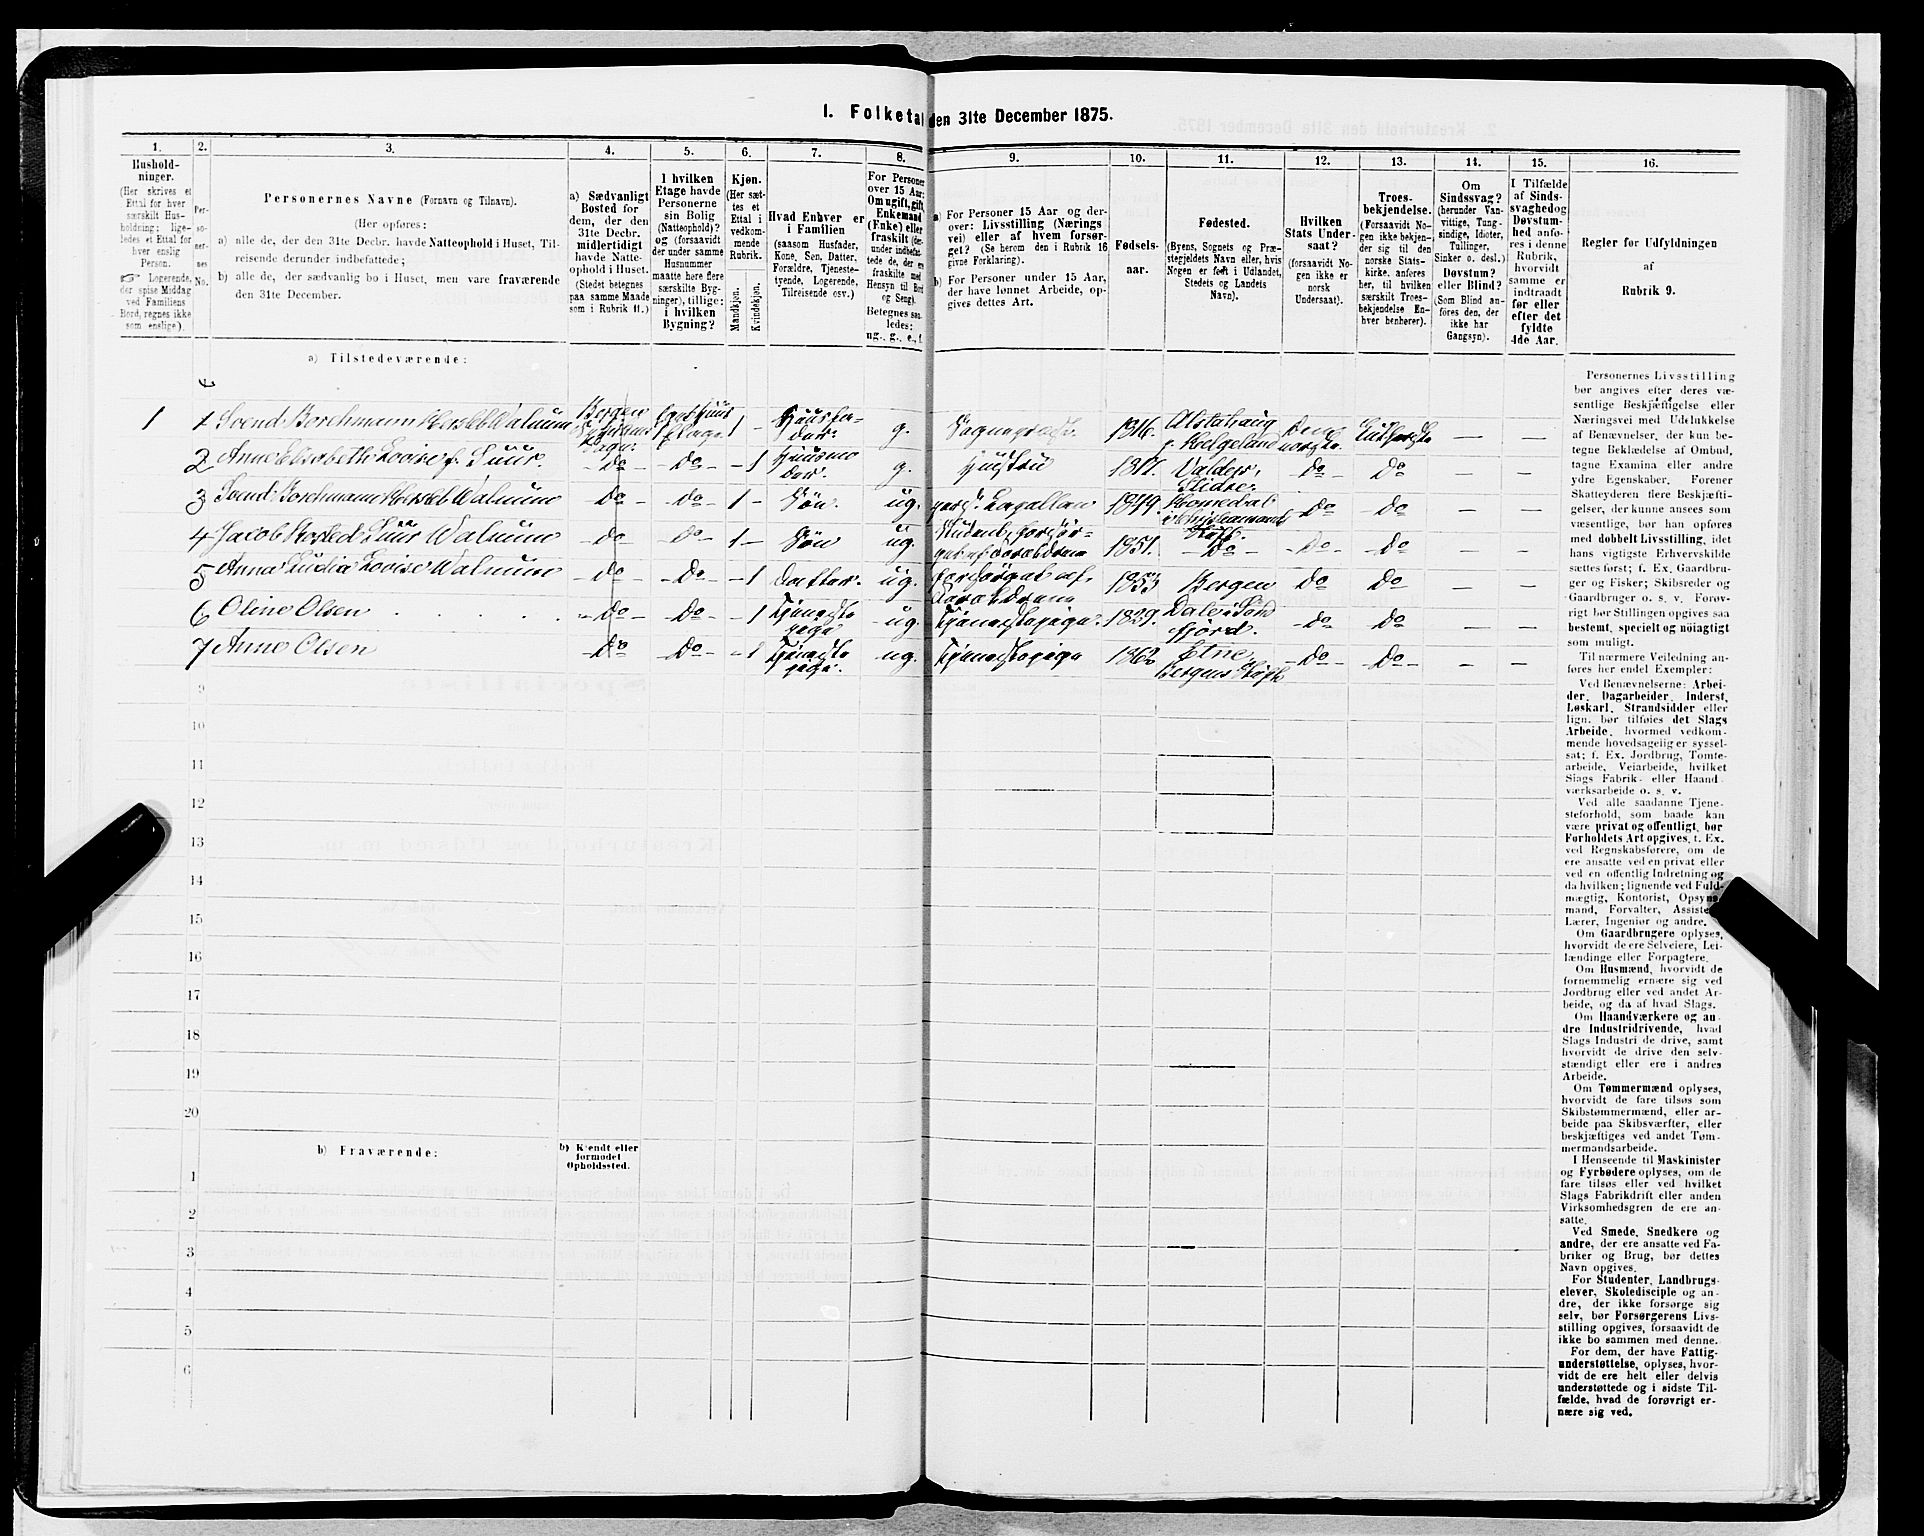 1. Folketal den 31te December 1875.
1.
Hushold-
ninger.
(Her skrives et
Ettal for hver
særskilt Hus-
holdning; lige-
ledes et Ettal for
hver enslig
Person.
☞ Logerende,
der spise Middag
ved Familiens
Bord, regnes ikke
som enslige).
2.
Per-
so-
ner-
nes
No.
3.
Personernes Navne (Fornavn og Tilnavn).
(Her opføres:
a) alle de, der den 31te Decbr. havde Natteophold i Huset, Til-
reisende derunder indbefattede;
b) alle de, der sædvanlig bo i Huset, men vare fraværende
den 31te December.
4.
a) Sædvanligt
Bosted for
dem, der den
31te Decbr.
midlertidigt
havde Natte-
ophold i Huset.
(Stedet betegnes
paa samme Maade
som i Rubrik 11.)
5.
I hvilken
Etage havde
Personerne
sin Bolig
(Natteophold)?
og (forsaavidt
der under samme
Husnummer
maatte høre flere
særskilte Byg-
ninger), tillige:
i hvilken
Bygning?
6.
Kjøn.
(Her sæt-
tes et
Ettal i
vedkom-
mende
Rubrik.
Mandkjøn.
Kvindekjøn.
7.
Hvad Enhver er
i Familien
(saasom Husfader,
Kone, Søn, Datter,
Forældre, Tjeneste-
tyende, Logerende,
Tilreisende osv.)
8.
For Personer
over 15 Aar:
Om ugift, gift,
Enkemand
(Enke) eller
fraskilt (der-
under indbefat-
tede de, der ere
fraskilte med
Hensyn til Bord
og Seng).
Betegnes saa-
ledes:
ug., g., e., f.
9.
a) For Personer 15 Aar og der-
over: Livsstilling (Nærings
vei) eller af hvem forsør-
get? (Se herom den i Rubrik 16
givne Forklaring).
b) For Personer under 15 Aar,
der have lønnet Arbeide, op-
gives dettes Art.
10.
Fødsels-
aar.
11.
Fødested.
(Byens, Sognets og Præ-
stegjeldets Navn eller, hvis
Nogen er født i Udlandet,
Stedets og Landets
Navn).
12.
Hvilken
Stats Under-
saat?
(forsaavidt No-
gen ikke er
norsk
Undersaat).
13.
Troes-
bekjendelse.
(Forsaavidt No-
gen ikke bekjen-
der sig til den
norske Stats-
kirke, anføres
her, til hvilken
særskilt Troes-
bekjendelse En-
hver henhører).
14.
Om
Sindssvag?
(herunder Van-
vittige, Tung-
sindige, Idioter,
Tullinger,
Sinker o. desl.)
Døvstum?
eller Blind?
(Som Blind an-
føres den, der
ikke har
Gangsyn).
15.
I Tilfælde
af Sinds-
svaghed og
Døvstum-
hed anfø-
res i denne
Rubrik,
hvorvidt
samme er
indtraadt
før eller
efter det
fyldte
4de Aar.
16.
Regler for Udfyldningen
af
Rubrik 9.
a) Tilstedeværende:
1 1 Svend Borchmann Hersleb Walnum Bergen 1 - Huusfader g. Sognepræst. 1816. Alstahaug i Helgeland Den norske Lutherske — —
2 Anne Elisabeth Lovise f. Tuur. - Do - - Do - - 1 Huusmoder. g. Hustru 1817. Valders, Slidre. Do Do — —
3 Svend Borchmann Hersleb Walnum - Do - - Do - 1 - Søn. ug. 1849. Homedal Christiansands Stift. Do Do — —
4 Jacob Tuur Walnum - Do - - Do - 1 - Søn ug. Student, forsørget af Forældrene 1851. - Do - - Do - - Do - — —
5 Anna Lovise Walnum - Do - - Do - - 1 Datter. ug. forsørget af Forældrene 1853 Bergen Do Do — —
6 Oline Olsen - Do - - Do - - 1 Tjenestepige ug. Tjenestepige. 1829. Dale i Søndfjord. - Do - Do — —
7 Anne Olsen - Do - - Do - - 1 Tjenestepige. ug. Tjenestepige Etne Bergens Stift - Do - - Do - — —
9
10
11
12
13
14
15
16
17
18
19
20
b) Fraværende:
b) Kjendt eller
formodet
Opholdssted.
1
2
3
4
5
6
Personernes Livsstilling
bør angives efter deres væ-
sentlige Beskjæftigelse eller
Næringsvei med Udelukkelse
af Benævnelser, der kun be-
tegne Beklædelse af Ombud,
tagne Examina eller andre
ydre Egenskaber. Forener
Skatteyderen flere Beskjæfti-
gelser, der kunne ansees som
væsentlige, bør han opføres
med dobbelt Livsstilling, idet
hans vigtigste Erhvervskilde
sættes først; f. Ex. Gaardbru-
ger og Fisker; Skibsreder og
Gaardbruger o. s. v. Forøv-
rigt bør Stillingen opgives saa
bestemt, specielt og nøiagtigt
som muligt.
Til nærmere Veiledning an-
føres her endel Exempler:
Ved Benævnelserne: Arbei-
der, Dagarbeider, Inderst,
Løskarl, Strandsidder eller
lign. bør tilføies det Slags
Arbeide, hvormed vedkom-
mende hovedsagelig er syssel-
sat; f. Ex. Jordbrug, Tomte-
arbeide, Veiarbeide, hvilket
Slags Fabrik- eller Haand-
værksarbeide o. s. v.
Ved alle saadanne Tjene-
steforhold, som baade kan
være privat og offentligt, bør
Forholdets Art opgives, f. Ex.
ved Regnskabsførere, om de
ere ansatte ved en privat eller
ved en offentlig Indretning og
da hvilken; lignende ved Fuld-
mægtig, Kontorist, Opsyns-
mand, Forvalter, Assistent,
Lærer, Ingeniør og andre.
Om Gaardbrugere oplyses,
hvorvidt de ere Selveiere, Lei-
lændinge eller Forpagtere.
Om Husmænd, hvorvidt de
fornemmelig ernære sig ved
Jordbrug eller ved andet Ar-
beide, og da af hvad Slags.
Om Haandværkere og an-
dre Industridrivende, hvad
Slags Industri de drive, samt
hvorvidt de drive den selv-
stændigt eller ere i andres
Arbeide.
Om Tømmermænd oplyses,
hvorvidt de fare tilsøs som
Skibstømmermænd, eller ar-
beide paa Skibsværfter, eller
beskjæftiges ved andet Tøm-
mermandsarbeide.
I Henseende til Maskinister
og Fyrbødere oplyses, om de
fare tilsøs eller ved hvilket
Slags Fabrikdrift eller anden
Virksomhedsgren de ere an-
satte.
Ved Smede, Snedkere og
andre, der ere ansatte ved Fa-
briker og Brug, bør dettes
Navn opgives.
For Studenter, Landbrugs-
elever, Skoledisciple og an-
dre, der ikke forsørge sig
selv, bør Forsørgerens Livs-
stilling opgives, forsaavidt de
ikke bo sammen med denne.
For dem, der have Fattig-
understøttelse, oplyses, hvor-
vidt de ere helt eller delvis
understøttede og i sidste Til-
fælde, hvad de forøvrigt er-
nære sig ved.